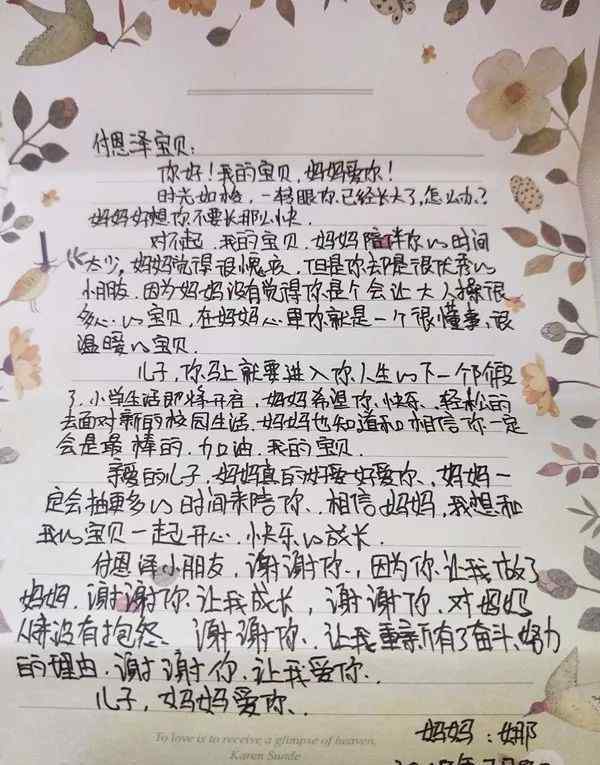 付恩泽宝贝:
你好!我的宝贝,妈妈爱你!
时光如梭,一转眼你已经长大了,怎么办?
妈妈好想你不要长那么快.
对不起,我的宝贝,妈妈陪伴你的时间
太少,妈妈觉得很愧疚,但是你却是很优秀的
小朋友,因为妈妈没有觉得你是个会让大人操很
多心的宝贝,在妈妈心里你就是一个很懂事、很
温暖的宝贝.
儿子,你马上就要进入你人生的下一个阶段
了,小学生活即将开启,妈妈希望你,快乐、轻松的
去面对新的校园生活,妈妈也知道和相信你一定
会是最棒的,加油,我的宝贝.
亲爱的儿子,妈妈真的好爱好爱你,妈妈一
定会抽更多的时间来陪你,相信妈妈,我想和
我的宝贝一起开心、快乐的成长.
付恩泽小朋友,谢谢你,因为你,让我做了
妈妈,谢谢你,让我成长,谢谢你,对妈妈
从来没有抱怨、谢谢你,让我重新有了奋斗、努力
的理由,谢谢你,让我爱你、
儿子,妈妈爱你、
妈妈:娜
To love is to receive a glimpse of heaven,
Karen Sunde